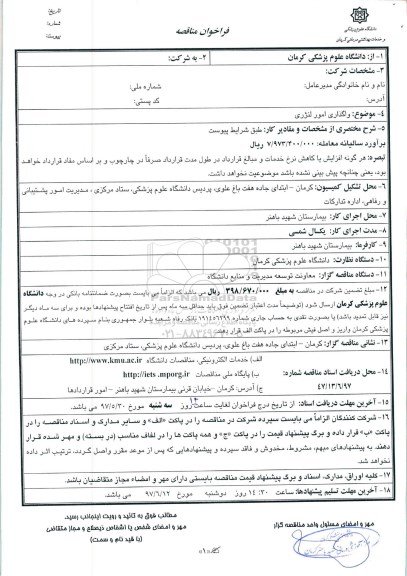 دانشگاه علوم پزشکی
و خدمات بهداشتی درمانی کرمان
تاریخ:
شماره:
پیوست:
فراخوان مناقصه
۱- از: دانشگاه علوم پزشکی کرمان
۲- به شرکت:
۳- مشخصات شرکت:
نام و نام خانوادگی مدیرعامل: شماره ملی:
آدرس: کد پستی:
۴- موضوع: واگذاری امور لنژری
۵- شرح مختصری از مشخصات و مقادیر کار: طبق شرایط پیوست
برآورد سالیانه معامله: ۷/۹۷۳/۴۰۰/۰۰۰ ریال
تبصره: هر گونه افزایش یا کاهش نرخ خدمات و مبالغ قرارداد در طول مدت قرارداد صرفاً در چارچوب و بر اساس مفاد قرارداد خواهد
بود، یعنی چنانچه پیش بینی نشده باشد موضوعیت نخواهد داشت.
۶- محل تشکیل کمیسیون: کرمان – ابتدای جاده هفت باغ علوی، پردیس دانشگاه علوم پزشکی، ستاد مرکزی ، مدیریت امور پشتیبانی
و رفاهی، اداره تدارکات
۷- محل اجرای کار: بیمارستان شهید باهنر
۸- مدت اجرای کار: یکسال شمسی
۹- کارفرما: بیمارستان شهید باهنر
۱۰- دستگاه نظارت: دانشگاه علوم پزشکی کرمان
۱۱- دستگاه مناقصه گزار: معاونت توسعه مدیریت و منابع دانشگاه
۱۲- مبلغ تضمین شرکت در مناقصه به مبلغ ۳۹۸/۶۷۰/۰۰۰ ریال می باشد که الزاماً می بایست بصورت ضمانتنامه بانکی در وجه دانشگاه
علوم پزشکی کرمان ارسال شود (توضیحاً مدت اعتبار تضمین فوق باید حداقل سه ماه پس از تاریخ افتتاح پیشنهادها بوده و برای سه ماه دیگر
نیز قابل تمدید باشد) یا بصورت نقدی به حساب جاری شماره بانک رفاه شعبه بلوار جمهوری بنام سپرده های دانشگاه علوم
پزشکی کرمان واریز و اصل فیش مربوطه را در پاکت الف قرار دهند.
۱۳- نشانی مناقصه گزار: کرمان – ابتدای جاده هفت باغ علوی، پردیس دانشگاه علوم پزشکی، ستاد مرکزی
۱۴- محل دریافت اسناد مناقصه شماره:
۴۷/۱۳/۶/۹۷
الف) خدمات الکترونیکی، مناقصات دانشگاه http://www.kmu.ac.ir
ب) پایگاه ملی مناقصات http://iets.mporg.ir
ج) آدرس: کرمان – خیابان قرنی بیمارستان شهید باهنر – امور قراردادها
۱۵- آخرین مهلت دریافت اسناد: از تاریخ درج فراخوان لغایت ساعت ۱۴ روز سه شنبه مورخ ۹۷/۵/۳۰ می باشد.
۱۶- شرکت کنندگان الزاماً می بایست سپرده شرکت در مناقصه را در پاکت «الف» و سایر مدارک و اسناد مناقصه را در
پاکت «ب» قرار داده و برگ پیشنهاد قیمت را در پاکت «ج» و همه پاکت ها را در لفاف مناسب (در بسته) و مهر شده قرار
دهند. به پیشنهادهای مبهم، مشروط، مخدوش و فاقد سپرده و پیشنهادهایی که پس از موعد مقرر واصل گردد، ترتیب اثر داده
نخواهد شد.
۱۷- کلیه اوراق، مدارک، اسناد و برگ پیشنهاد قیمت مناقصه بایستی دارای مهر و امضاء مجاز متقاضیان باشد.
۱۸- آخرین مهلت تسلیم پیشنهادها: ساعت ۱۴:۳۰ روز دوشنبه مورخ ۹۷/۶/۱۲ می باشد.
مهر و امضای مسئول واحد مناقصه گزار
مطالب فوق به تائید و رویت اینجانب رسید.
مهر و امضای شخص یا اشخاص ذیصلاح و مجاز متقاضی
(با قید نام و سمت)